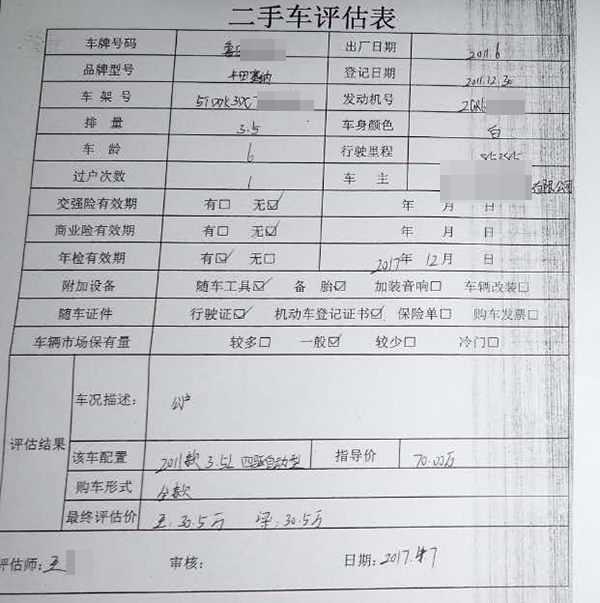 二手车评估表
车牌号码 出厂日期 2011.6
品牌型号 登记日期 2011.12.30
车架号 发动机号 2GR6
排量 3.5 车身颜色 白
车龄 6 行驶里程
过户次数 1 车主 有限公司
交强险有效期 有□ 无☑ 年 月 日
商业险有效期 有□ 无☑ 年 月 日
年检有效期 有☑ 无□ 2017年 12月 日
附加设备 随车工具☑ 备胎☑ 加装音响□ 车辆改装□
随车证件 行驶证☑ 机动车登记证书☑ 保险单□ 购车发票□
车辆市场保有量 较多□ 一般☑ 较少□ 冷门□
评估结果
车况描述: 公户
该车配置 2011款 3.5L 四驱自动型 指导价 70.00万
购车形式 全款
最终评估价 王:30.5万 评:30.5万
评估师:王 审核: 日期:2017.